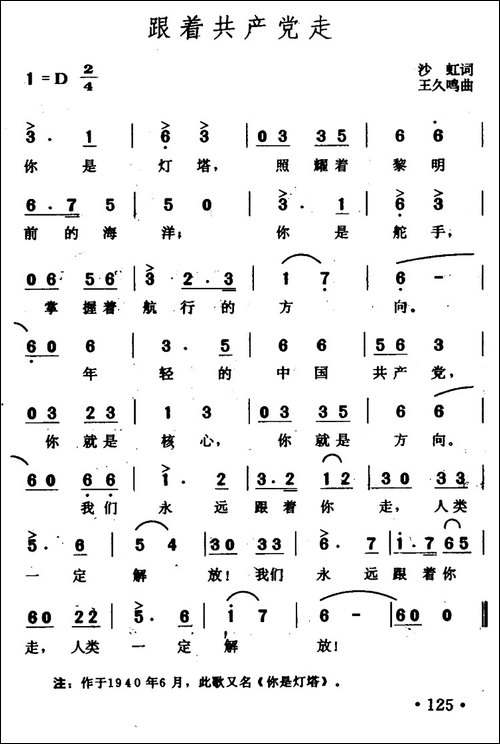 跟着共产党走
1=D 2/4
沙 虹词
王久鸣曲
3. 1 | 6 3 | 03 35 | 6 6 |
你 是 灯 塔, 照 耀着 黎 明
6.7 5 | 5 0 | 3. 1 | 6 3 |
前 的 海 洋; 你 是 舵 手,
06 56 | 3 2.3 | 1 7 | 6 - |
掌 握着 航 行 的 方 向。
60 6 | 3. 5 | 6 6 | 56 3 |
年 轻 的 中 国 共产 党,
03 23 | 1 3 | 03 35 | 6 6 |
你 就是 核 心, 你 就是 方 向。
60 66 | 1. 2 | 3.2 12 | 30 33 |
我们 永 远 跟着 你 走, 人类
5. 6 | 5 4 | 30 33 | 6. 7 | 1.7 65 |
一 定 解 放! 我们 永 远 跟着 你
60 22 | 5. 6 | 1 7 | 6 - | 60 0 ‖
走, 人类 一 定 解 放!
注: 作于1940年6月, 此歌又名《你是灯塔》。
· 125 ·